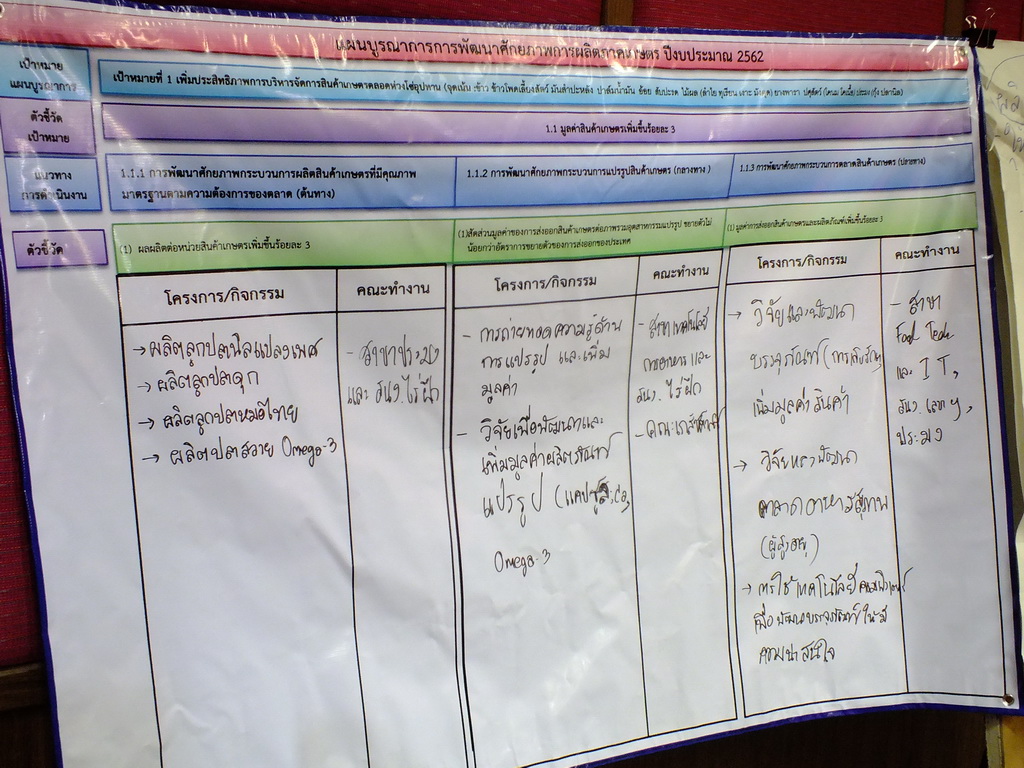 แผนบูรณาการการพัฒนาศักยภาพการผลิตภาคเกษตร ปีงบประมาณ 2562
เป้าหมาย
แผนบูรณาการ
เป้าหมายที่ 1 เพิ่มประสิทธิภาพการบริหารจัดการสินค้าเกษตรตลอดห่วงโซ่อุปทาน (จุดเน้น :ข้าว ข้าวโพดเลี้ยงสัตว์ มันสำปะหลัง ปาล์มน้ำมัน อ้อย สับปะรด ไม้ผล (ลำไย ทุเรียน เงาะ มังคุด) ยางพารา ปศุสัตว์ (โคนม โคเนื้อ) ประมง (กุ้ง ปลานิล)
ตัวชี้วัด
เป้าหมาย
1.1 มูลค่าสินค้าเกษตรเพิ่มขึ้นร้อยละ 3
แนวทาง
การดำเนินงาน
1.1.1 การพัฒนาศักยภาพกระบวนการผลิตสินค้าเกษตรที่มีคุณภาพ
มาตรฐานตามความต้องการของตลาด (ต้นทาง)
1.1.2 การพัฒนาศักยภาพกระบวนการแปรรูปสินค้าเกษตร (กลางทาง )
1.1.3 การพัฒนาศักยภาพกระบวนการตลาดสินค้าเกษตร (ปลายทาง)
ตัวชี้วัด
(1) ผลผลิตต่อหน่วยสินค้าเกษตรเพิ่มขึ้นร้อยละ 3
(1)สัดส่วนมูลค่าของการส่งออกสินค้าเกษตรต่อภาพรวมอุตสาหกรรมแปรรูป ขยายตัวไม่
น้อยกว่าอัตราการขยายตัวของการส่งออกของประเทศ
(1) มูลค่าการส่งออกสินค้าเกษตรและผลิตภัณฑ์เพิ่มขึ้นร้อยละ 3
โครงการ/กิจกรรม
คณะทำงาน
→ ผลิตลูกปลานิลแปลงเพศ
→ ผลิตลูกปลาดุก
→ ผลิตลูกปลาหมอไทย
→ ผลิตปลาสวาย Omega-3
- สาขาประมง
และ สนง. ไร่ฝึก
โครงการ/กิจกรรม
คณะทำงาน
- การถ่ายทอดความรู้ด้าน
การแปรรูป และเพิ่ม
มูลค่า
- วิจัยเพื่อพัฒนาและ
เพิ่มมูลค่าผลิตภัณฑ์
แปรรูป (แคปซูล
Omega-3
- สาขาเทคโนโลยี
การอาหาร และ
สนง. ไร่ฝึก
- คณะเภสัช
โครงการ/กิจกรรม
คณะทำงาน
→ วิจัยและพัฒนา
บรรจุภัณฑ์
เพิ่มมูลค่าสินค้า
→ วิจัยและพัฒนา
ตลาดอาหารสุขภาพ
(ผู้สูงอายุ)
→ การใช้เทคโนโลยีคอมพิวเตอร์
เพื่อพัฒนาบรรจุภัณฑ์ให้มี
ความน่าสนใจ
- สาขา
Food Tech
และ IT,
ประมง